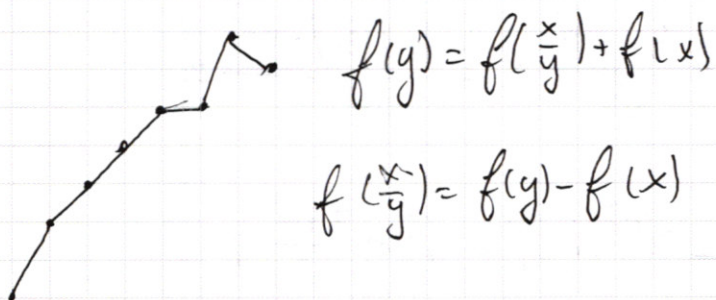 f(y) = f(x/y) + f(x)
f(x/y) = f(y) - f(x)